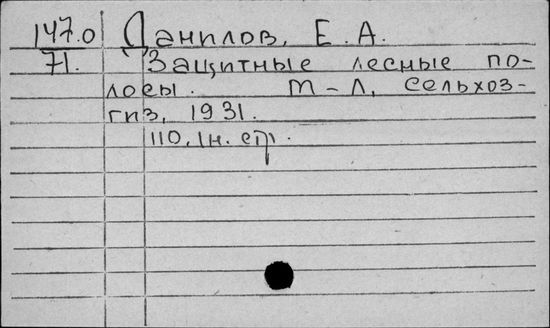 147.0 Данилов, Е. А.
71. Защитные лесные по-
лосы. М-Л, Сельхоз-
гиз, 1931.
110, 1н. стр.